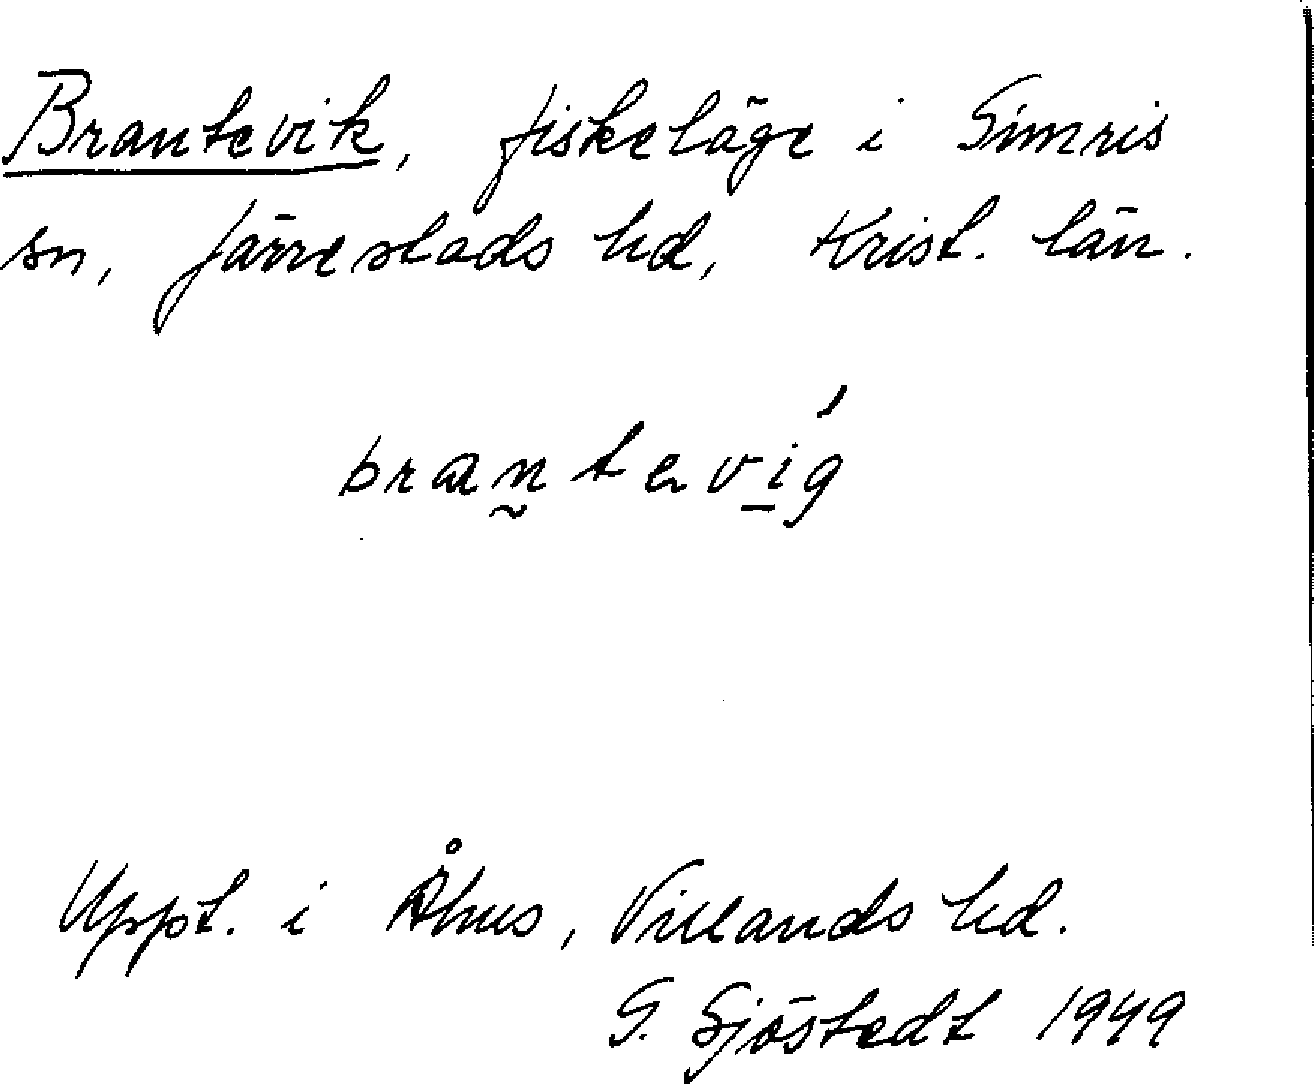 Brantevik, fiskeläge i Simris
sn, Järrestads hd, Krist. län.
bran̰tevi̱ǵ
Uppt. i Åhus, Villands hd.
G. Sjöstedt 1949